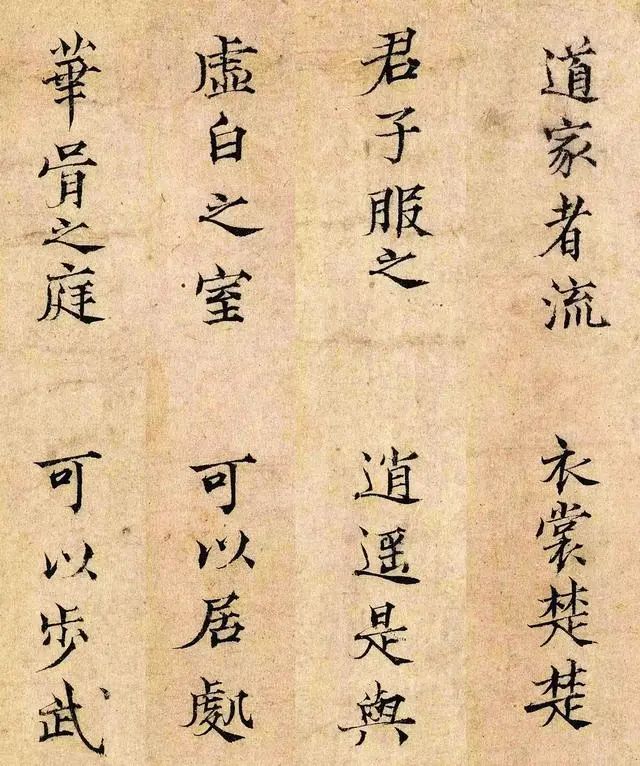 道家者流 衣裳楚楚
君子服之 逍遥是與
虛白之室 可以居處
華胥之庭 可以歩武